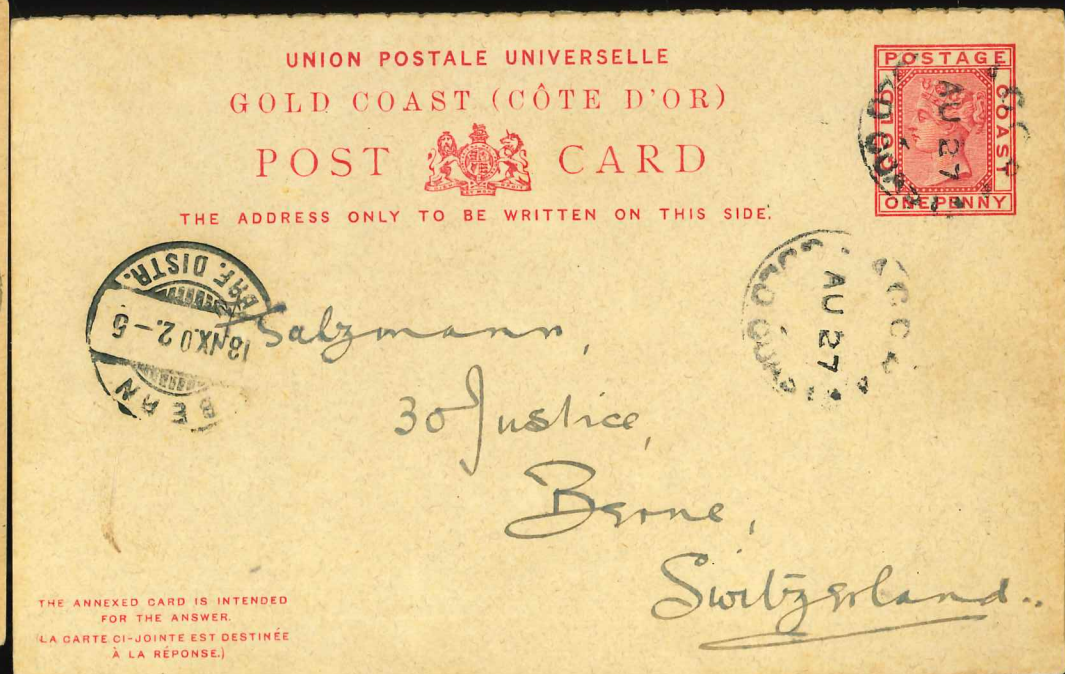 UNION POSTALE UNIVERSELLE
GOLD COAST (CÔTE D'OR)
POST CARD
THE ADDRESS ONLY TO BE WRITTEN ON THIS SIDE.
POSTAGE
GOLD COAST
ONE PENNY
AU 27
ACCRA
AU 27
GOLD COAST
BERN
13.IX.02.-5
DISTR.
Salzmann,
30 Justice,
Berne,
Switzerland..
THE ANNEXED CARD IS INTENDED
FOR THE ANSWER.
(LA CARTE CI-JOINTE EST DESTINÉE
À LA RÉPONSE.)